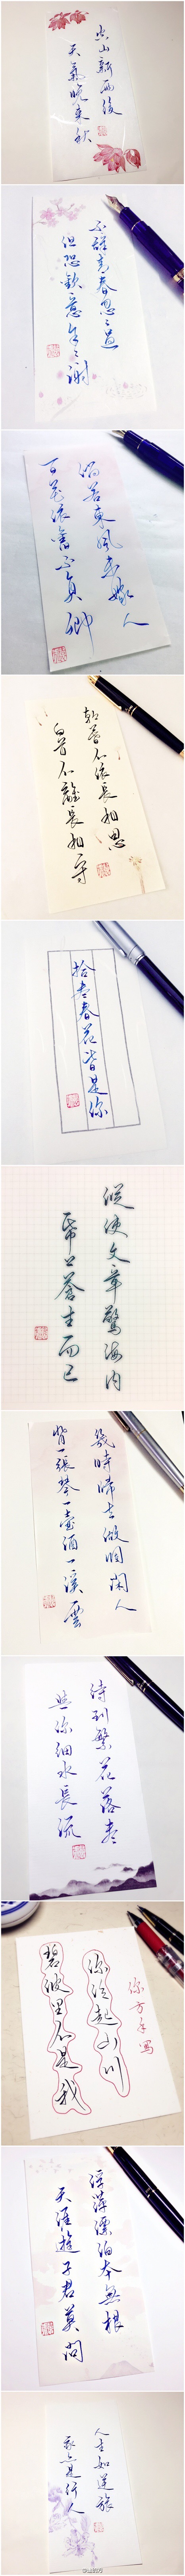 空山新雨後
天氣晚來秋
不辭青春忽々過
但恐歡意年々謝
東風 嫁人
百花深 不負卿
朝暮不依長相思
白首不離長相守
拾盡春花皆是你
縱使文章驚海內
紙上蒼生而已
幾時歸去做個閑人
一張琴一壺酒一溪雲
待到繁花落盡
與你細水長流
你方手寫
你 起山川
碧波里不是我
浮萍漂泊本無根
天涯遊子君莫問
人生如逆旅
我亦是行人